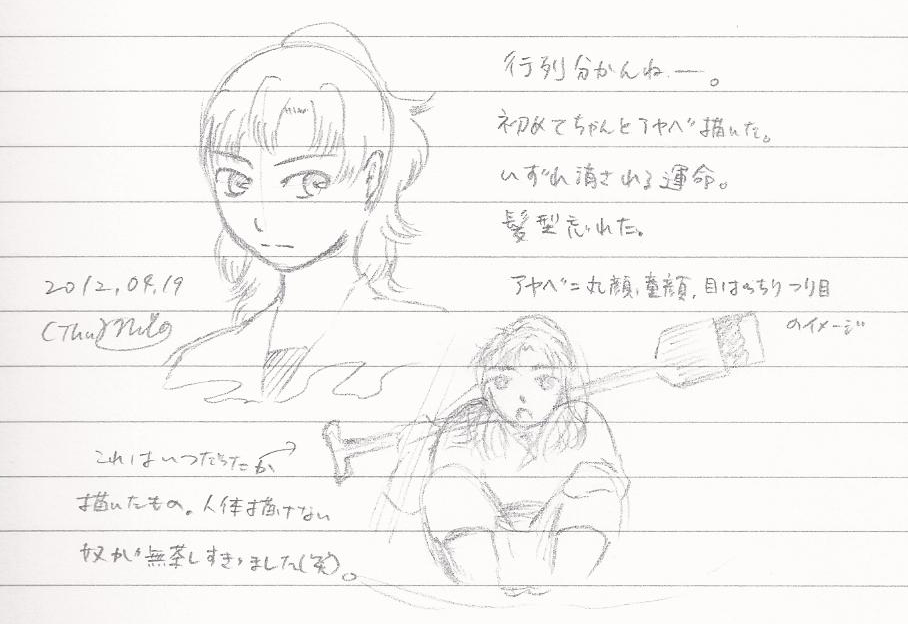 行列分かんねー。
初めてちゃんとアヤベ描いた。
いずれ消される運命。
髪型忘れた。
アヤベ=丸顔、童顔、目はぱっちりつり目
のイメージ
2012.04.19
(Thu)
これはいつだったか
描いたもの。人体描けない
奴が無茶しすぎました(笑)。